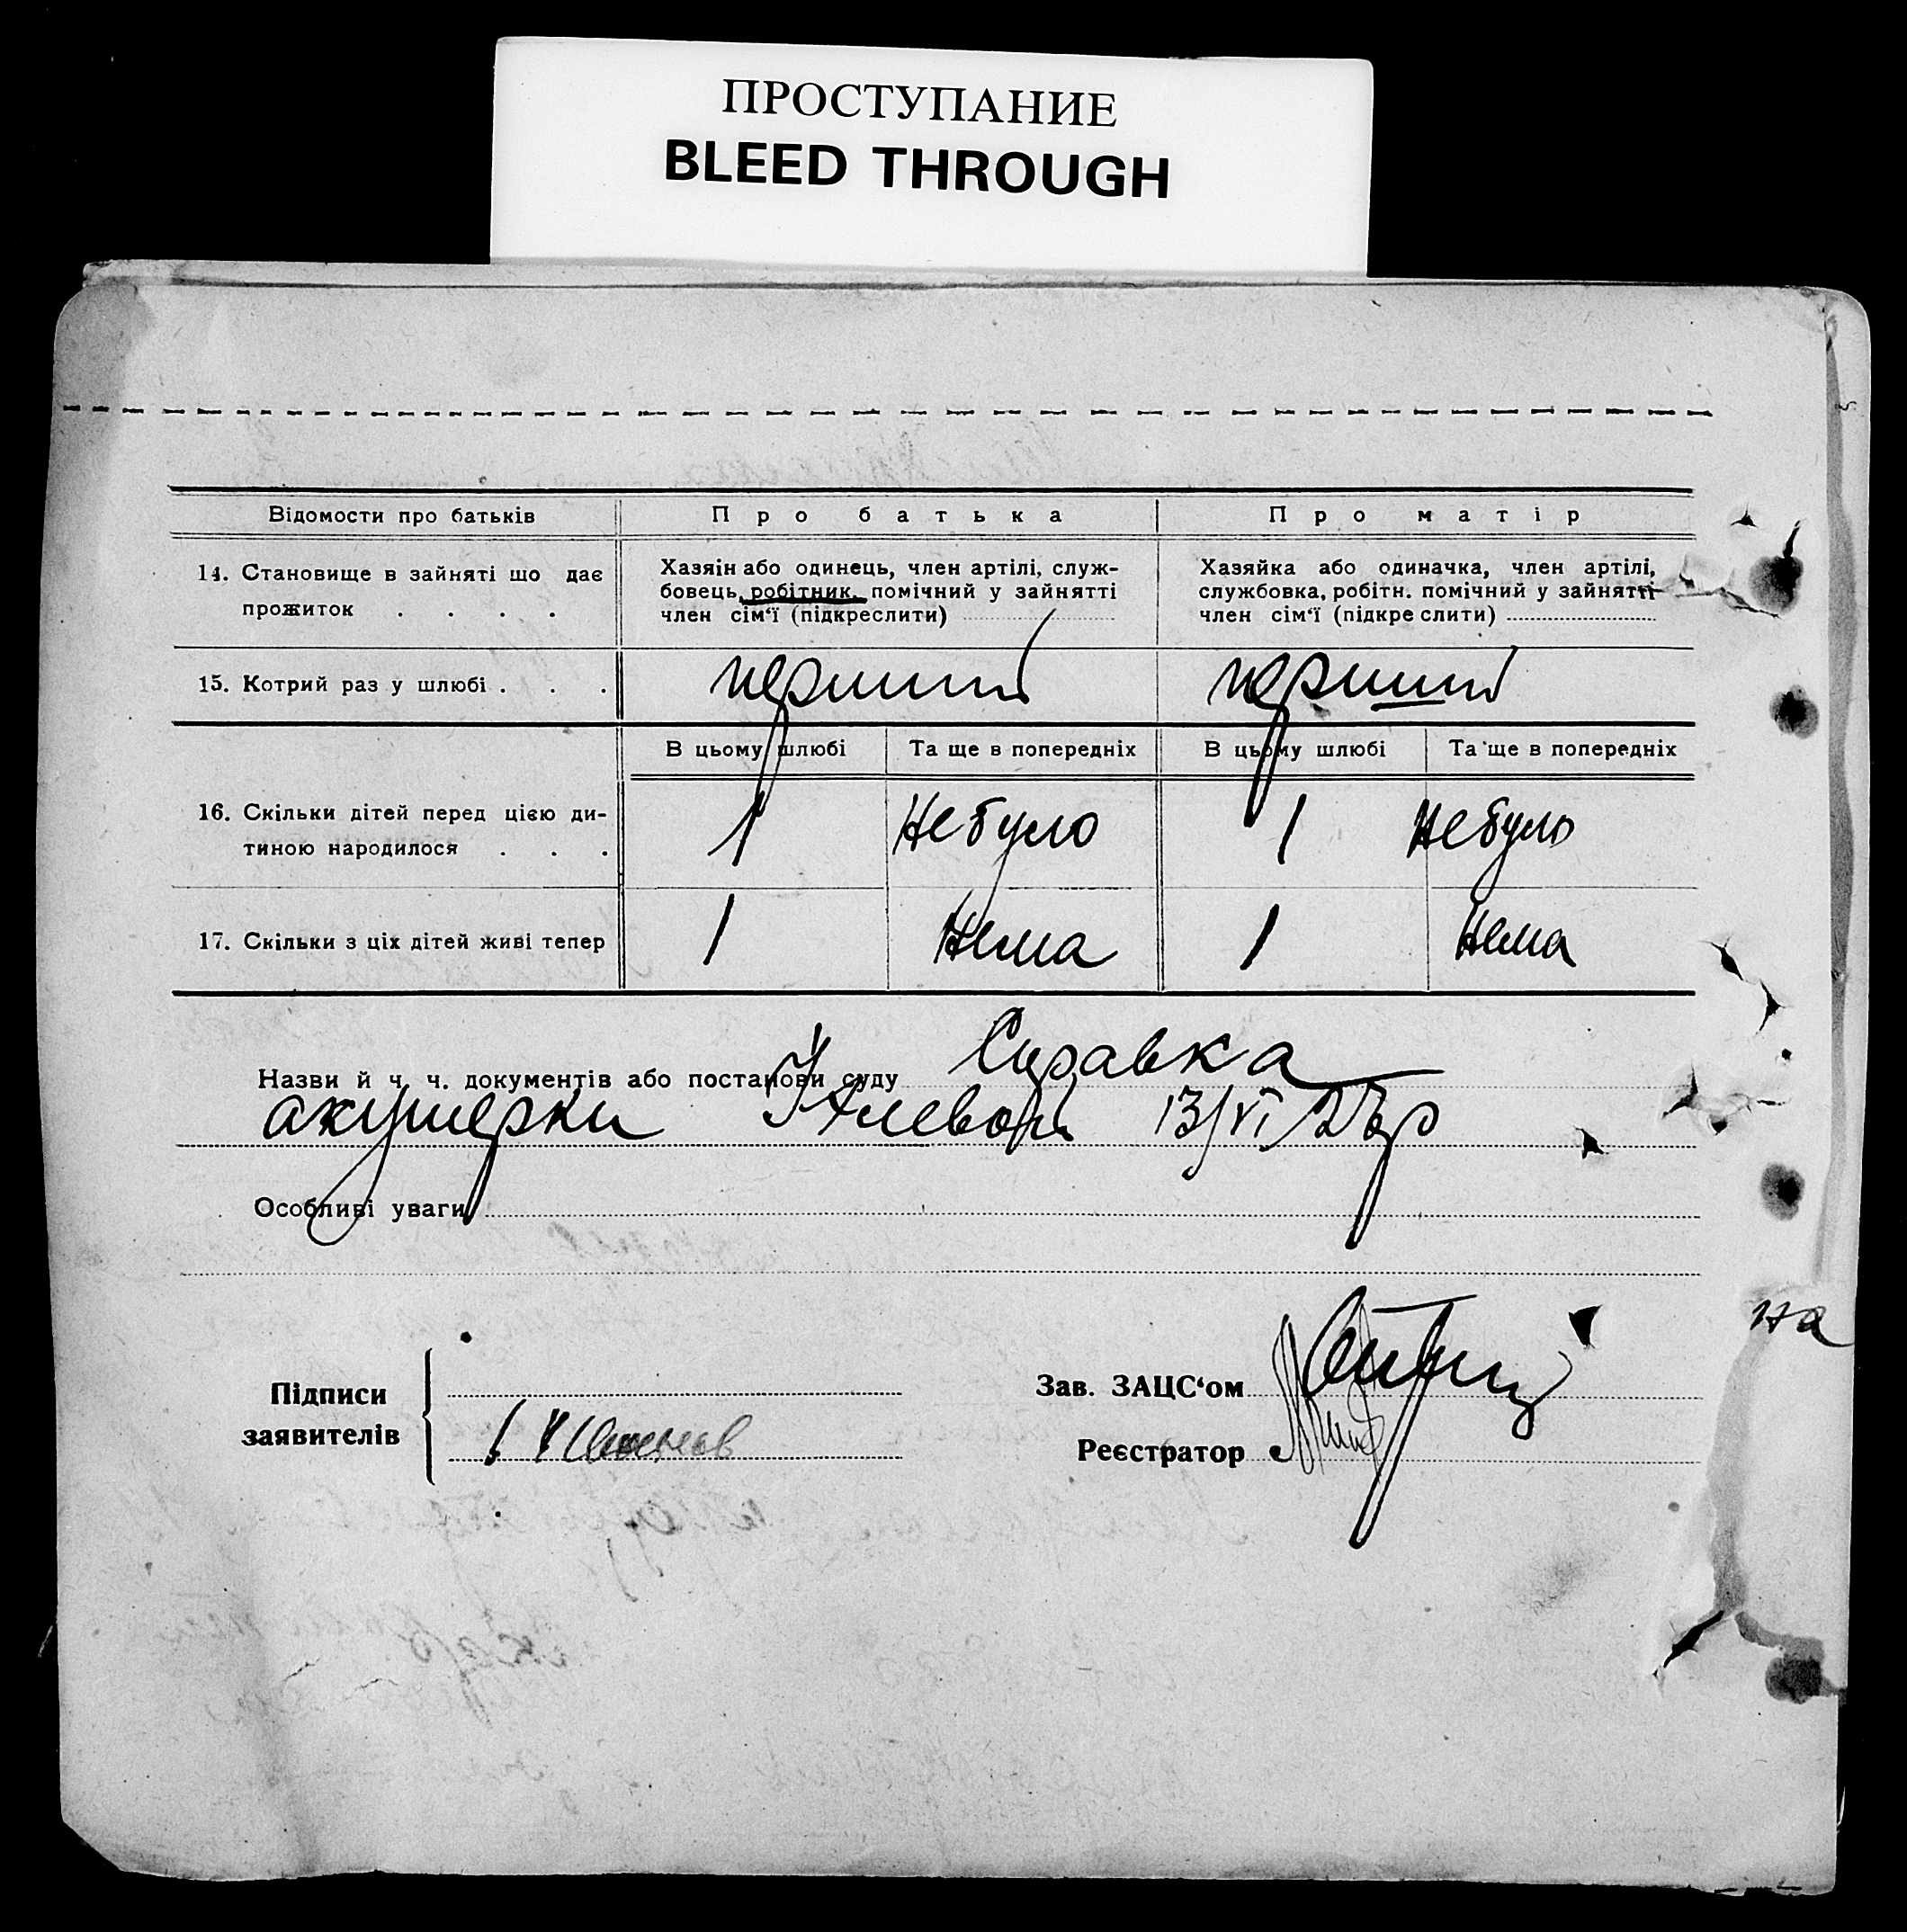 ПРОСТУПАНИЕ
BLEED THROUGH
Відомости про батьків
Про батька
Про матір
14. Становище в зайняті що дає
прожиток . . . .
Хазяін або одинець, член артілі, служ-
бовець, робітник, помічний у зайнятті
член сім‘ї (підкреслити)
Хазяйка або одиначка, член артілі,
службовка, робітн. помічний у зайнятті
член сім‘ї (підкреслити)
15. Котрий раз у шлюбі . . .
перший
перший
В цьому шлюбі
Та ще в попередніх
В цьому шлюбі
Та ще в попередніх
16. Скільки дітей перед цією ди-
тиною народилося . . .
1
Небуло
1
Небуло
17. Скільки з ціх дітей живі тепер
1
Нема
1
Нема
Назви й ч. ч. документів або постанови суду Справка
акушерки 13/VI
Особливі уваги
Підписи
заявителів
Зав. ЗАЦС‘ом
Реєстратор
на